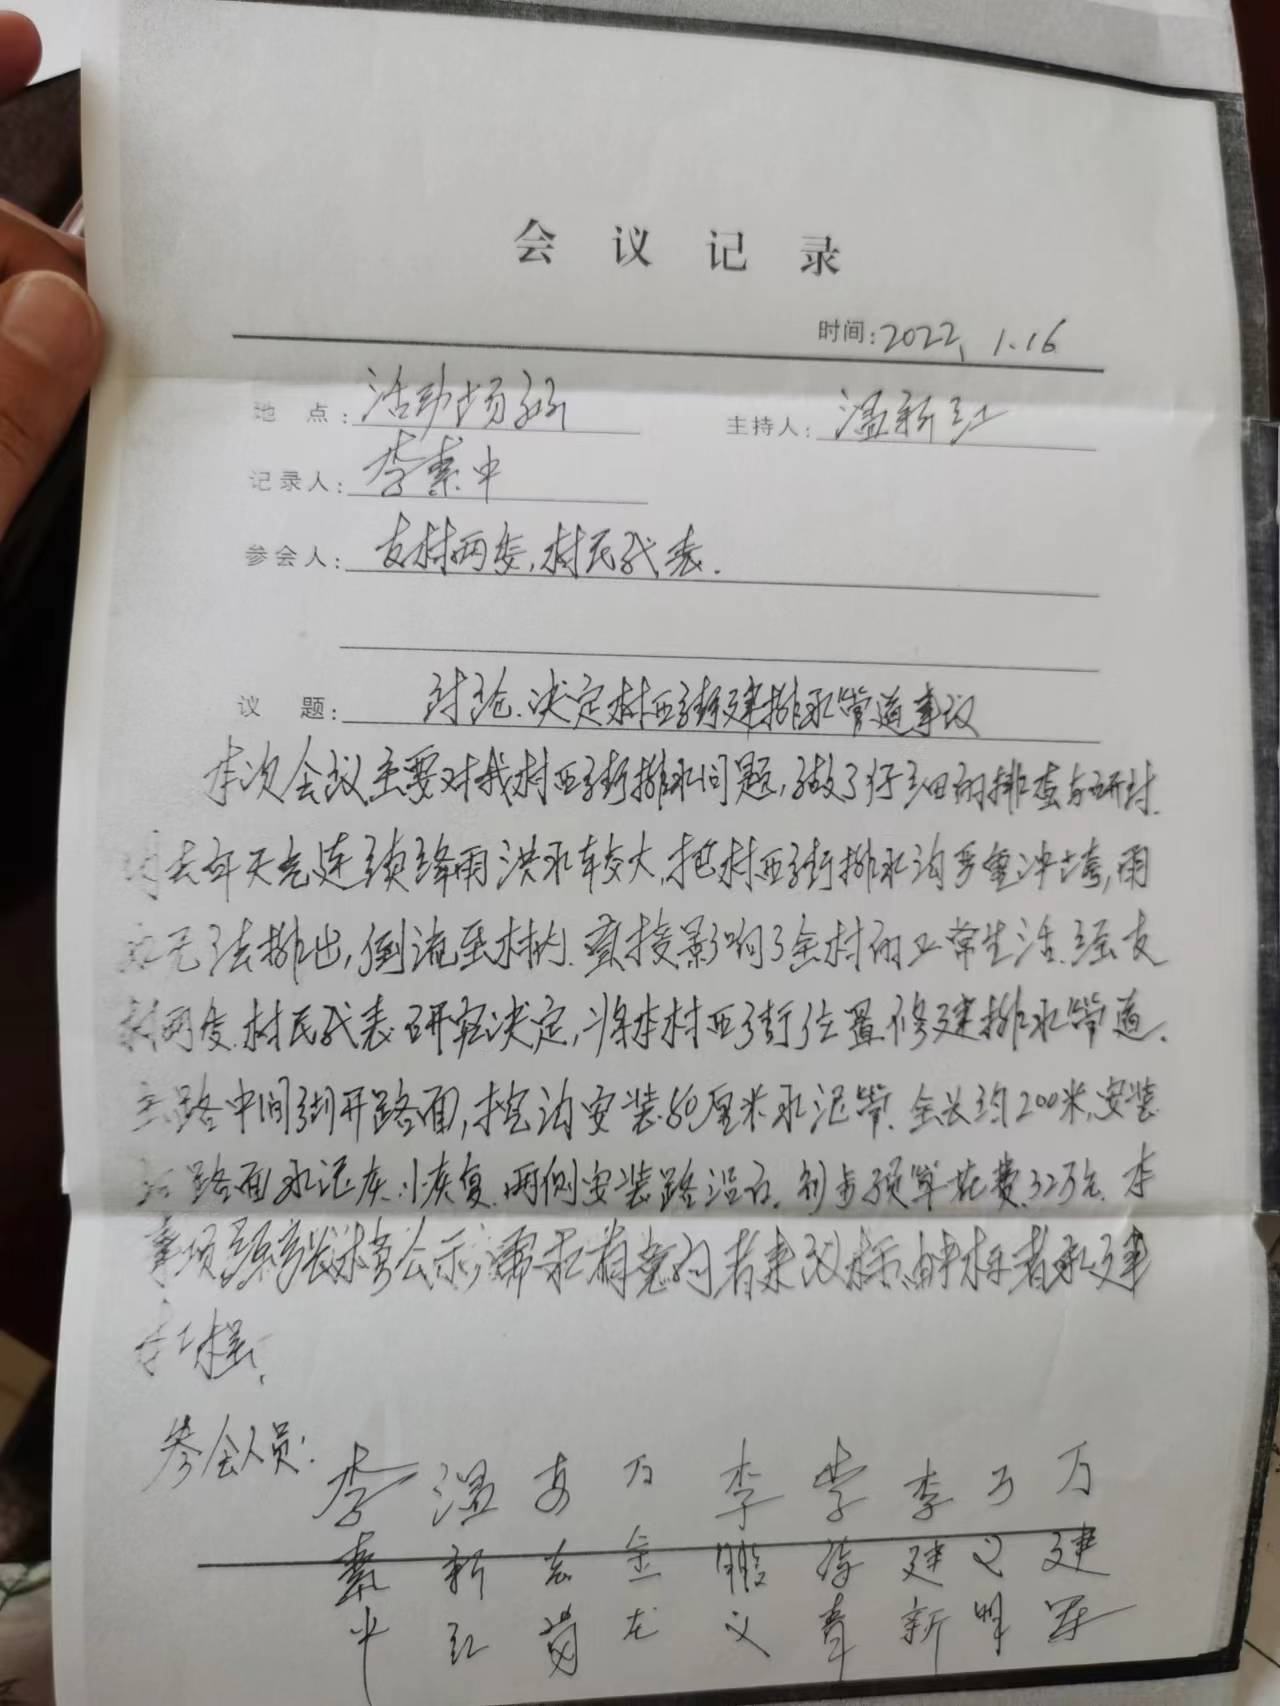 会议记录
时间:2022、1.16
地点:活动场所 主持人:温新红
记录人:李素中
参会人:支村两委,村民代表.
议题:讨论.决定村西街建排水管道事议
本次会议主要对我村西街排水问题,做了仔细的排查与研讨.
因去年天气连续降雨洪水较大,把村西街排水沟严重冲垮,雨
水无法排出,倒流至村内.直接影响了全村的正常生活.经支
村两委.村民代表研究决定,将本村西街位置修建排水管道.
主路中间刨开路面,挖沟安装60厘米水泥管.全长约200米,安装
后路面水泥灰小恢复.两侧安装路沿石.初步预算花费32万元.本
事项 公示,需求有意向者来议标,由中标者承建
本工程.
参会人员:
李素中 温新红 安志 万金龙 李鹏义 李 章 李建新 万义明 万建军